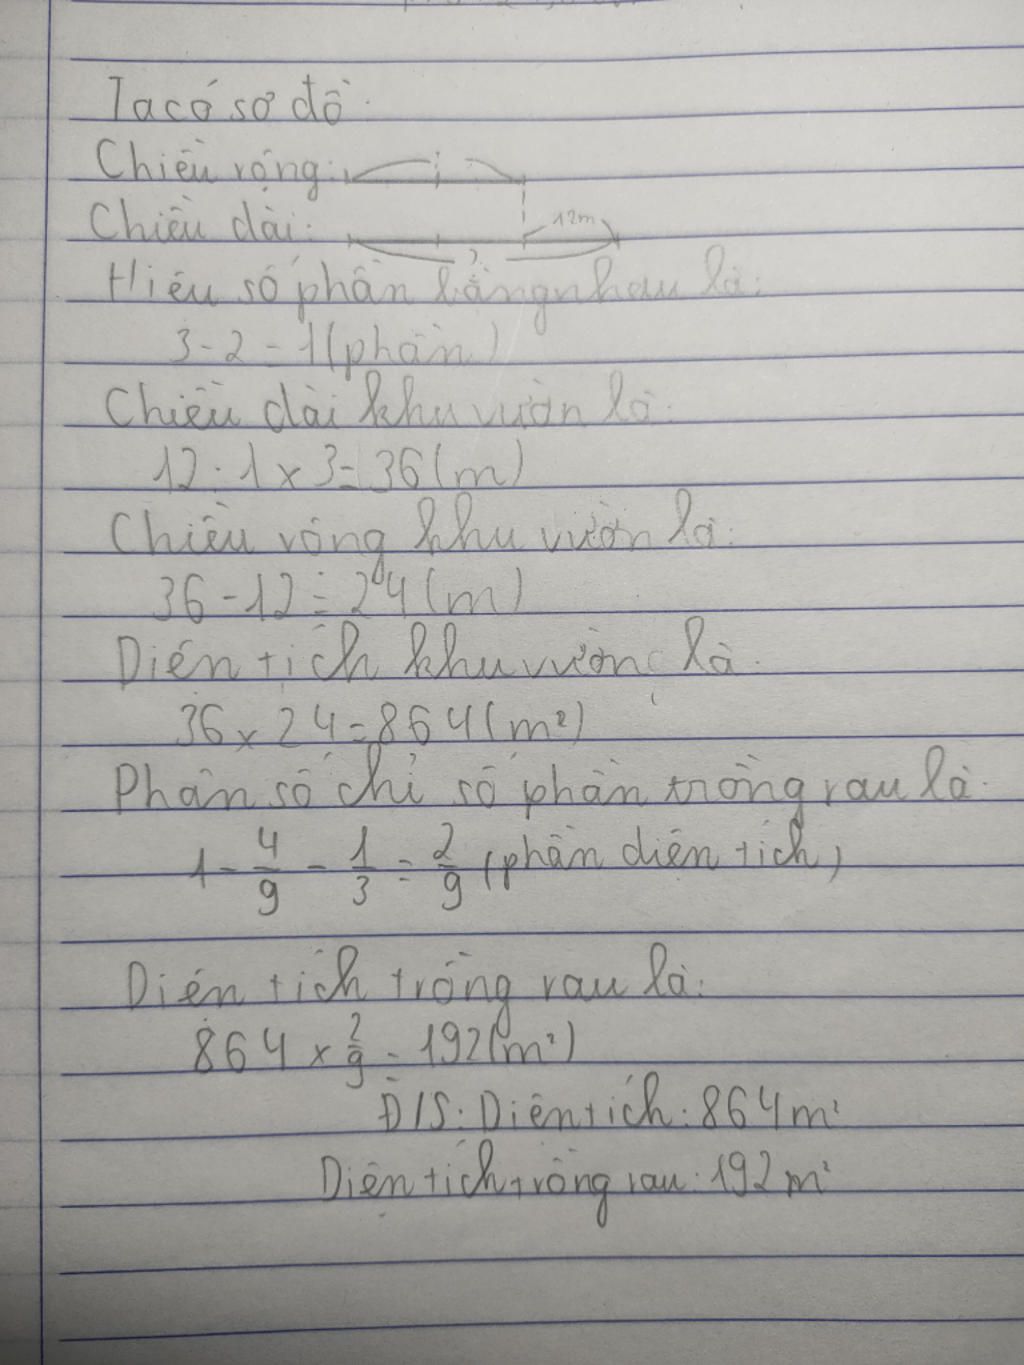 Ta có sơ đồ:
Chiều rộng:
12m
Chiều dài:
?
Hiệu số phần bằng nhau là:
3-2=1(phần)
Chiều dài khu vườn là:
12:1x3=36(m)
Chiều rộng khu vườn là:
36-12=24(m)
Diện tích khu vườn là:
36x24=864(m²)
Phân số chỉ số phần trồng rau là:
1-4/9-1/3=2/9(phần diện tích)
Diện tích trồng rau là:
864x2/9=192(m²)
Đ/S: Diện tích: 864m²
Diện tích trồng rau: 192m²